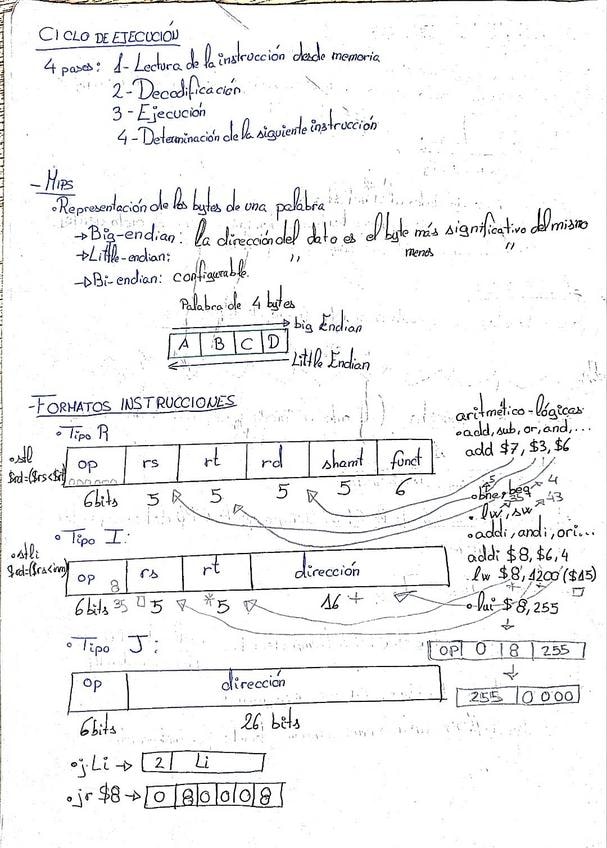 CICLO DE EJECUCIÓN
4 pasos: 1- Lectura de la instrucción desde memoria
2- Decodificación
3- Ejecución
4- Determinación de la siguiente instrucción
- MIPS
• Representación de los bytes de una palabra
→ Big-endian: la dirección del dato es el byte más significativo del mismo
→ Little-endian: " menos "
→ Bi-endian: configurable.
Palabra de 4 bytes
big Endian
A B C D
Little Endian
- FORMATOS INSTRUCCIONES
• Tipo R
op rs rt rd shamt funct
000000
6bits 5 5 5 5 6
aritmético-lógicas
• add, sub, or, and,...
add $7, $3, $6
• bne, beq
• lw, sw
• addi, andi, ori...
addi $8, $6, 4
lw $8, 1200 ($15)
• lui $8, 255
• Tipo I:
op 8 rs rt dirección
6bits 35 5 * 5 16 +
OP 0 8 255
255 0000
• Tipo J:
op dirección
6bits 26 bits
• j Li → 2 Li
• jr $8 → 0 8 0 0 0 8